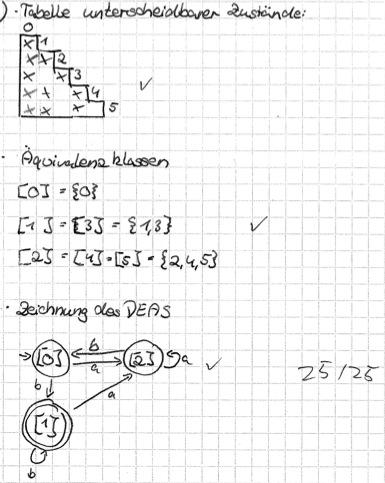 ) · Tabelle unterscheidbarer Zustände:
0
x 1
x x 2
x x 3
x x x 4
x x x 5
✓
· Äquivalenzklassen
[0] = {0}
[1] = [3] = {1,3} ✓
[2] = [4] = [5] = {2,4,5}
· Zeichnung des DEAS
[0] b a [2] a ✓
25/25
b a
[1]
b